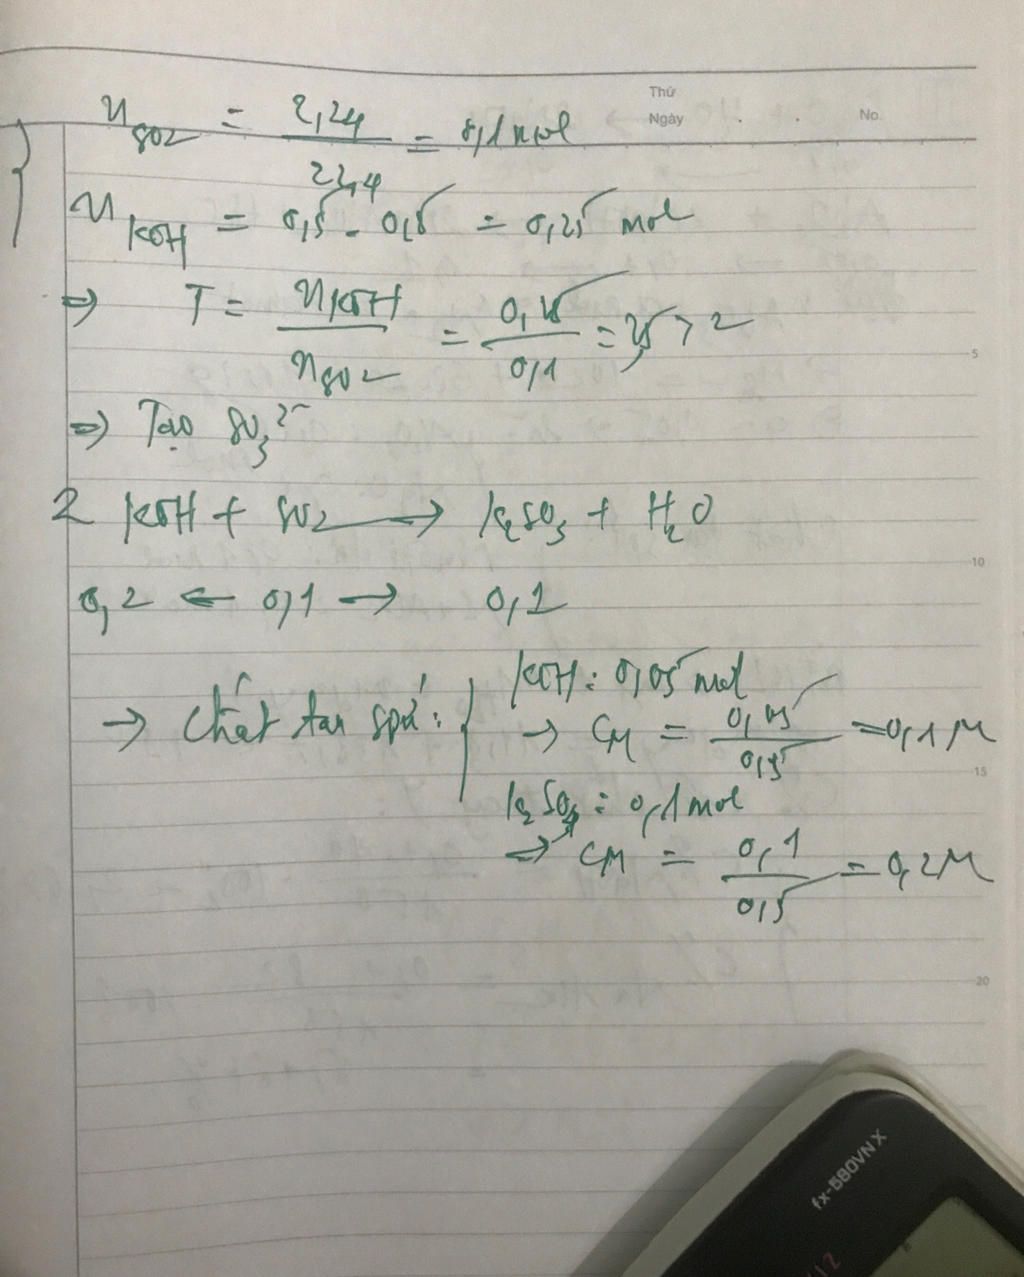 Thứ
Ngày . . No.
n SO2 = 2,24 / 22,4 = 0,1 mol
n KOH = 0,5 . 0,5 = 0,25 mol
=> T = nKOH / nSO2 = 0,25 / 0,1 = 2,5 > 2
=> Tạo SO3²⁻
2 KOH + SO2 → K2SO3 + H2O
0,2 ← 0,1 → 0,1
→ Chất tan spứ : { KOH : 0,05 mol
→ CM = 0,05 / 0,5 = 0,1 M
K2SO3 : 0,1 mol
=> CM = 0,1 / 0,5 = 0,2 M
5
10
15
20
fx-580VN X